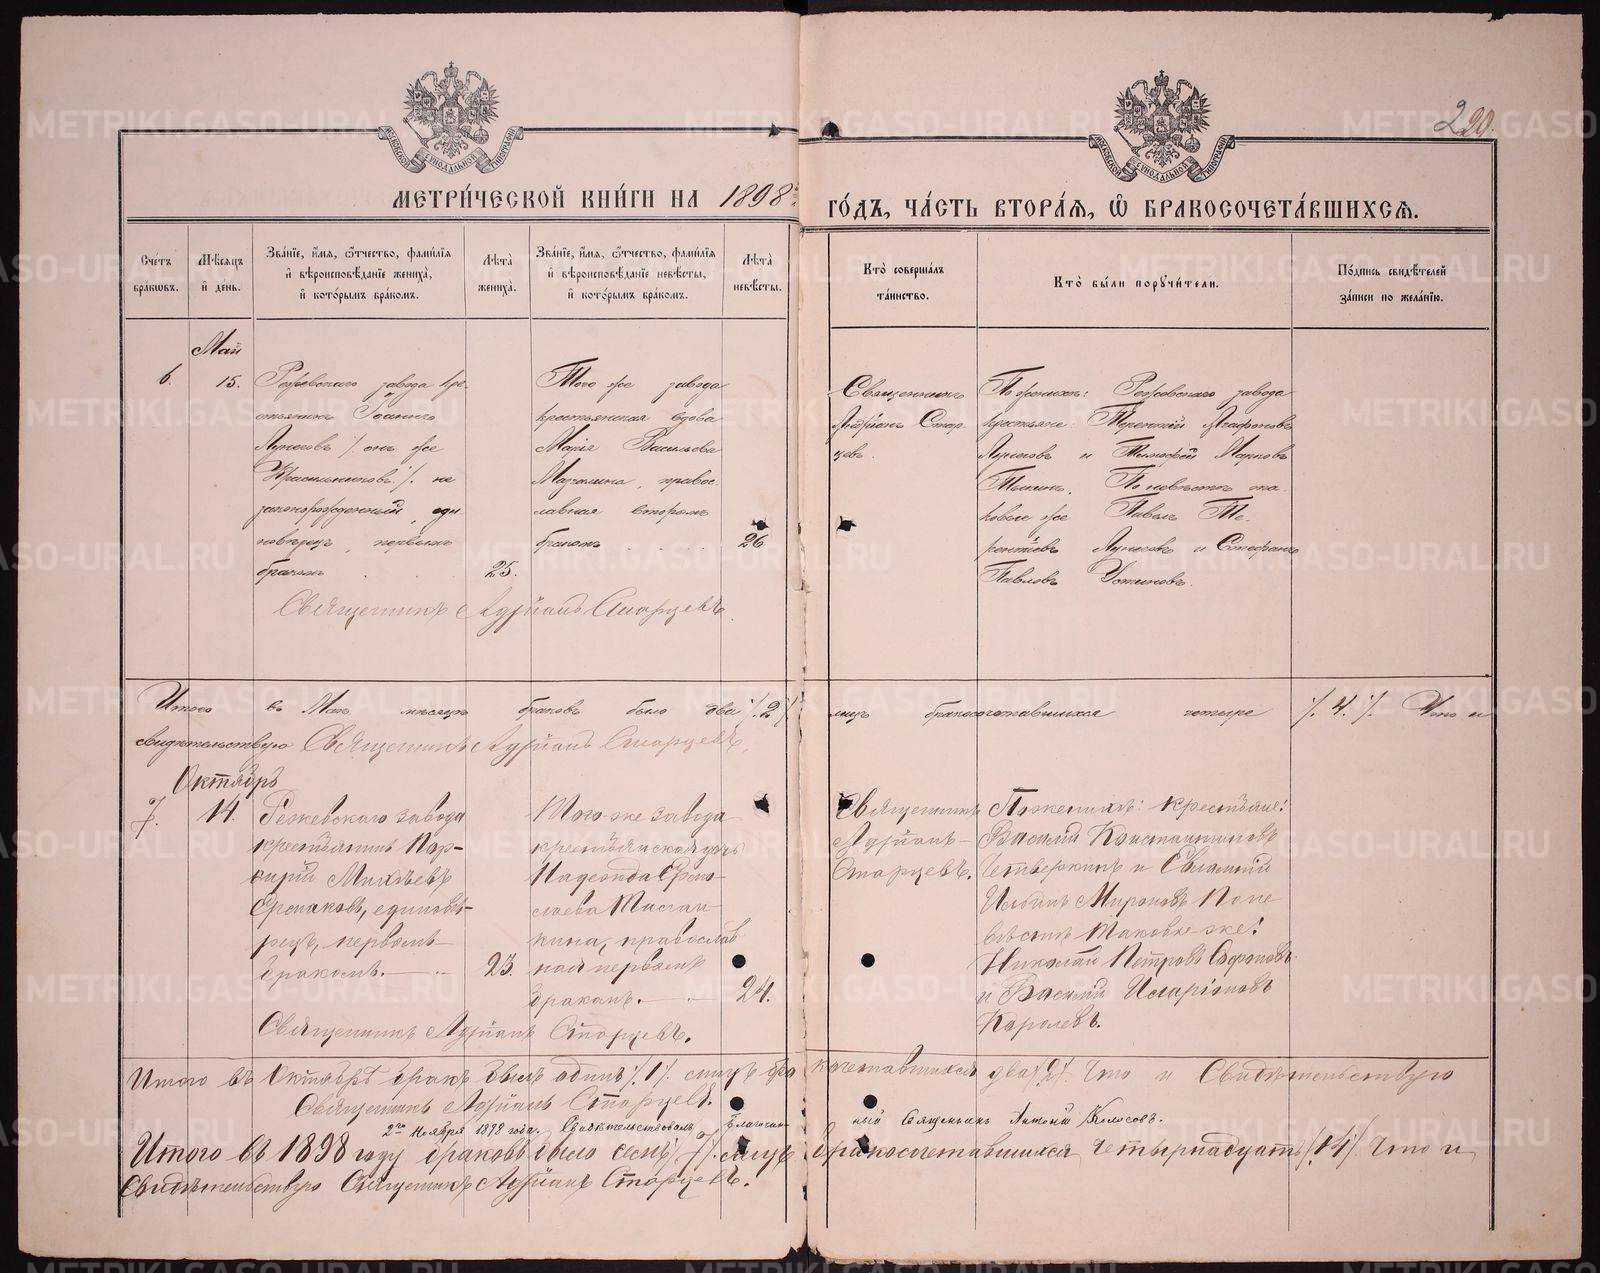 220.
МЕТРИ́ЧЕСКОЙ КНИ́ГИ НА 1898й
ГО́ДЪ, ЧА́СТЬ ВТОРА́Ѧ, Ѽ БРАКОСОЧЕТА́ВШИХСѦ.
Сче́тъ бра́ковъ.
Мѣ́сѧцъ и́ де́нь.
Зва́нїе, и́мѧ, ѻ҆́тчество, фами́лїѧ и҆ вѣроисповѣ́данїе жениха̀, и҆ кото́рымъ бра́комъ.
Лѣта̀ жениха̀.
Зва́нїе, и́мѧ, ѻ҆́тчество, фами́лїѧ и҆ вѣроисповѣ́данїе невѣ́сты, и҆ кото́рымъ бра́комъ.
Лѣта̀ невѣ́сты.
Кто̀ соверша́лъ та́инство.
Кто̀ бы́ли порꙋчи́тели.
По́дпись свидѣ́телей за́писи по жела́нїю.
6.
Май
15.
Режевскаго завода кре-
стьянинъ Іоаннъ
Лукинъ /: онъ же
Красильниковъ :/ не
законорожденный, еди
новѣрецъ, первымъ
бракомъ
25.
Того же завода
крестьянская вдова
Марія Васильева
православная вторымъ
бракомъ
26
Священникъ
Адріанъ Стар
цевъ.
По женихѣ: Режевского завода
крестьяне: Терентій Агафоновъ
и Тимофей Марковъ
По невѣстѣ та
ковые же Павелъ Те-
рентьевъ и Стефанъ
Павловъ Устиновъ.
Священникъ Адріанъ Старцевъ.
Итого въ Маѣ мѣсяцѣ браковъ было два /:2:/ лицъ бракосочетавшихся четыре /:4:/. Что и
свидѣтельствую Священникъ Адріанъ Старцевъ.
Октябрь
7.
14.
Режевского завода
крестьянинъ Пор-
фирій Михѣевъ
Ермаковъ, единовѣ-
рецъ, первымъ
бракомъ.
23.
Того-же завода
крестьянская дочь
Надежда Ермо-
лаева
православ
ная первымъ
бракомъ.
24.
Священникъ
Адріанъ
Старцевъ.
По женихѣ: крестьяне:
Василій Константиновъ
Четверкинъ и Евлампій
Ильинъ Мироновъ По не
вѣстѣ таковые-же:
Николай Петровъ Сафоновъ
и Василій Иларіоновъ
Королевъ.
Священникъ Адріанъ Старцевъ.
Итого въ Октябрѣ бракъ былъ одинъ /:1:/ лицъ бра косочетавшихся два /:2:/. Что и Свидѣтельствую
Священникъ Адріанъ Старцевъ.
2го Ноября 1898 года. Свидѣтельствовалъ Благочин ный Священникъ Антоній Колосовъ.
Итого въ 1898 году браковъ было семь /:7:/ лицъ бракосочетавшихся четырнадцать /:14:/ Что и
Свидѣтельствую Священникъ Адріанъ Старцевъ.
METRIKI.GASO-URAL.RU